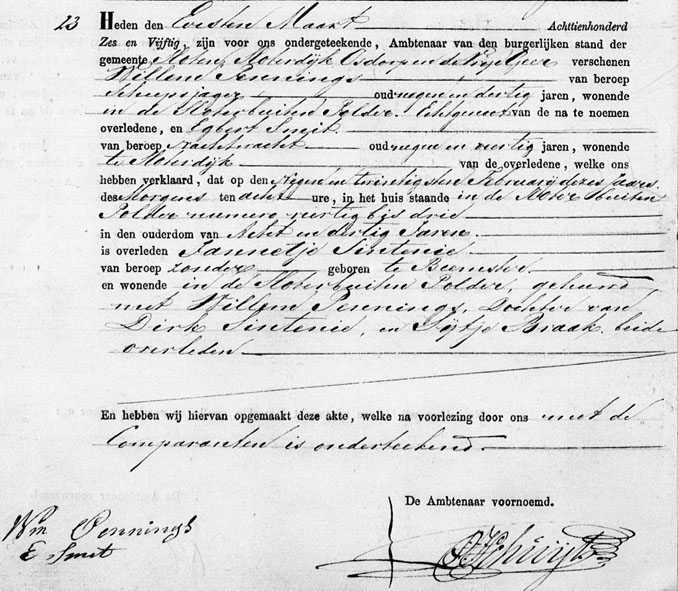 23 Heden den Eersten Maart Achttienhonderd
Zes en Vijftig, zijn voor ons ondergeteekende, Ambtenaar van den burgerlijken stand der
gemeente Sloten, Sloterdijk Osdorp en de Vrije Geer verschenen
Willem Pennings van beroep
Scheepsjager oud negen en dertig jaren, wonende
in de Sloterbuiten Polder. Echtgenoot van de na te noemen
overledene, en Egbert Smit
van beroep Nachtwacht oud negen en veertig jaren, wonende
te Sloterdijk van de overledene, welke ons
hebben verklaard, dat op den Negen en twintigsten February dezes Jaars
des Morgens ten acht ure, in het huis staande in de Sloter Buiten
Polder numero veertig bij drie
in den ouderdom van Acht en dertig Jaren
is overleden Jannetje Sintenie
van beroep zonder geboren te Beemster
en wonende in de Sloterbuiten Polder, gehuwd
met Willem Pennings, Dochter van
Dirk Sintenie, en Sijtje Braak, beide
overleden
En hebben wij hiervan opgemaakt deze akte, welke na voorlezing door ons met de
Comparanten is onderteekend.
De Ambtenaar voornoemd.
Wm Pennings
E Smit